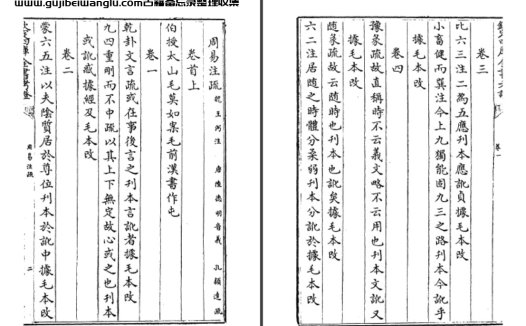 www.gujibeiwanglu.com古籍备忘录整理收集
周易注疏 魏王弼注 唐陸德明音義 孔穎達疏
卷首上
伯授太山毛莫如案毛前漢書作屯
卷一
乾卦文言疏或在事後言之刊本言訛者據毛本改
九四重剛而不中疏以其上下無定故心或之也刊本
或訛惑據經及毛本改
卷二
蒙六五注以夫陰質居於尊位刊本於訛中據毛本改
周易注疏
二
卷一
卷三
比六三注二為五應刊本應訛貞據毛本改
小畜健而巽注今上九獨能固九三之路刊本今訛乎
據毛本改
卷四
豫彖疏故直稱時不云義文略不云用也刊本文訛又
據毛本改
隨彖疏故云隨時也刊本也訛矣據毛本改
六二注居隨之時體分柔弱刊本分訛於據毛本改